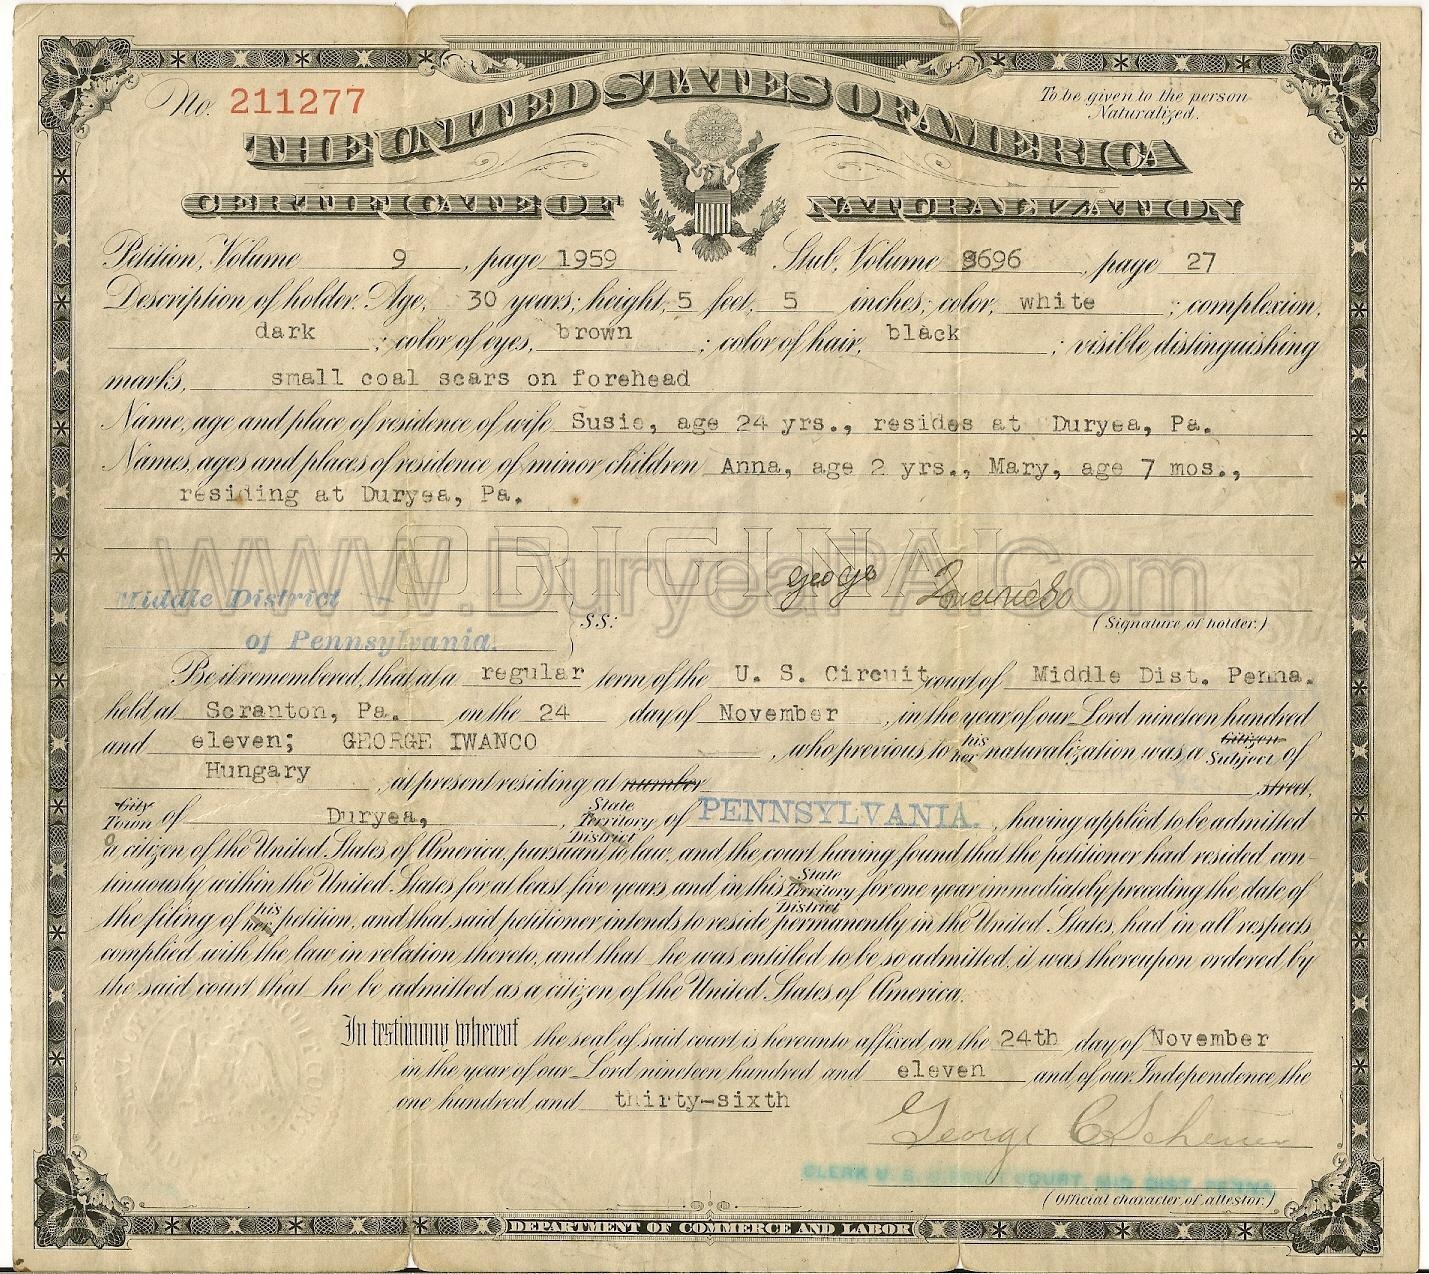 No. 211277
To be given to the person
Naturalized.
THE UNITED STATES OF AMERICA
CERTIFICATE OF NATURALIZATION
Petition, Volume 9, page 1959 Stub, Volume 8696, page 27
Description of holder: Age, 30 years; height, 5 feet, 5 inches; color, white; complexion,
dark; color of eyes, brown; color of hair, black; visible distinguishing
marks, small coal scars on forehead
Name, age and place of residence of wife Susie, age 24 yrs., resides at Duryea, Pa.
Names, ages and places of residence of minor children Anna, age 2 yrs., Mary, age 7 mos.,
residing at Duryea, Pa.
ORIGINAL
www.DuryeaPA.com
George
(Signature of holder.)
Middle District
of Pennsylvania.
} S.S:
Be it remembered, that at a regular term of the U. S. Circuit court of Middle Dist. Penna.
held at Scranton, Pa. on the 24 day of November, in the year of our Lord nineteen hundred
and eleven; GEORGE IWANCO, who previous to his her naturalization was a Citizen Subject of
Hungary at present residing at number street,
City Town of Duryea, State Territory District of PENNSYLVANIA., having applied to be admitted
a citizen of the United States of America, pursuant to law, and the court having found that the petitioner had resided con-
tinuously within the United States for at least five years and in this State Territory District for one year immediately preceding the date of
the filing of his her petition, and that said petitioner intends to reside permanently in the United States, had in all respects
complied with the law in relation thereto, and that he was entitled to be so admitted, it was thereupon ordered by
the said court that he be admitted as a citizen of the United States of America.
In testimony whereof the seal of said court is hereunto affixed on the 24th day of November
in the year of our Lord nineteen hundred and eleven and of our Independence the
one hundred and thirty-sixth
George C Scheuer
CLERK U. S. CIRCUIT COURT, MID DIST. PENNA
(Official character of attestor.)
DEPARTMENT OF COMMERCE AND LABOR